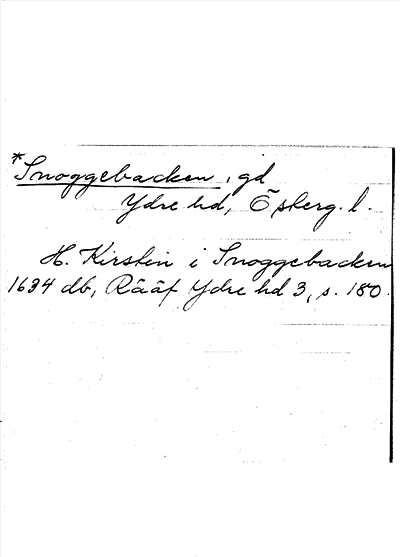 *Snoggebacken, gd
Ydre hd, Ö sterg. l.
H. Kirstin i Snoggebacken
1634 db, Rääf Ydre hd 3, s. 180.